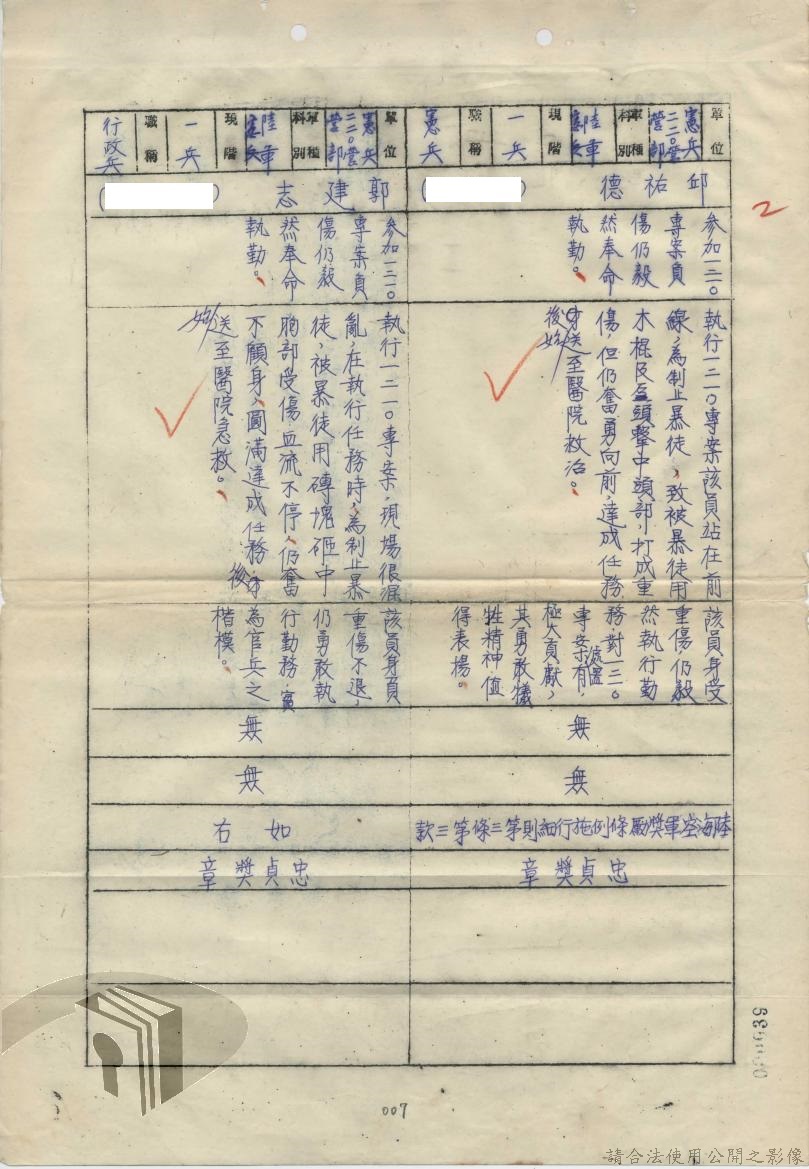 2
單位
憲兵
二二〇營
營部
軍種
科別
陸軍
憲兵
現階
一兵
職稱
憲兵
邱祐德
(
)
參加一二一〇
專案負
傷仍毅
然奉命
執勤。
執行一二一〇專案該員站在前
線,為制止暴徒,致被暴徒用
木棍及
擊中頭部,打成重
傷,但仍奮勇向前,達成任務
後始
送至醫院救治。
該員身受
重傷,仍毅
然執行勤
務,對一二一〇
專案處置有
極大貢獻,
其勇敢犧
牲精神值
得表揚。
無
無
陸海空軍獎勵條例施行細則第三條第三款
忠貞獎章
單位
憲兵
二二〇營
營部
軍種
科別
陸軍
憲兵
現階
一兵
職稱
行政兵
郭建志
(
)
參加一二一〇
專案負
傷仍毅
然奉命
執勤。
執行一二一〇專案,現場很混
亂,在執行任務時,為制止暴
徒,被暴徒用磚塊砸中
胸部受傷,血流不停,仍奮
不顧身,圓滿達成任務後
始送至醫院急救。
該員身負
重傷不退,
仍勇敢執
行勤務,實
為官兵之
楷模。
無
無
如右
忠貞獎章
007
請合法使用公開之影像